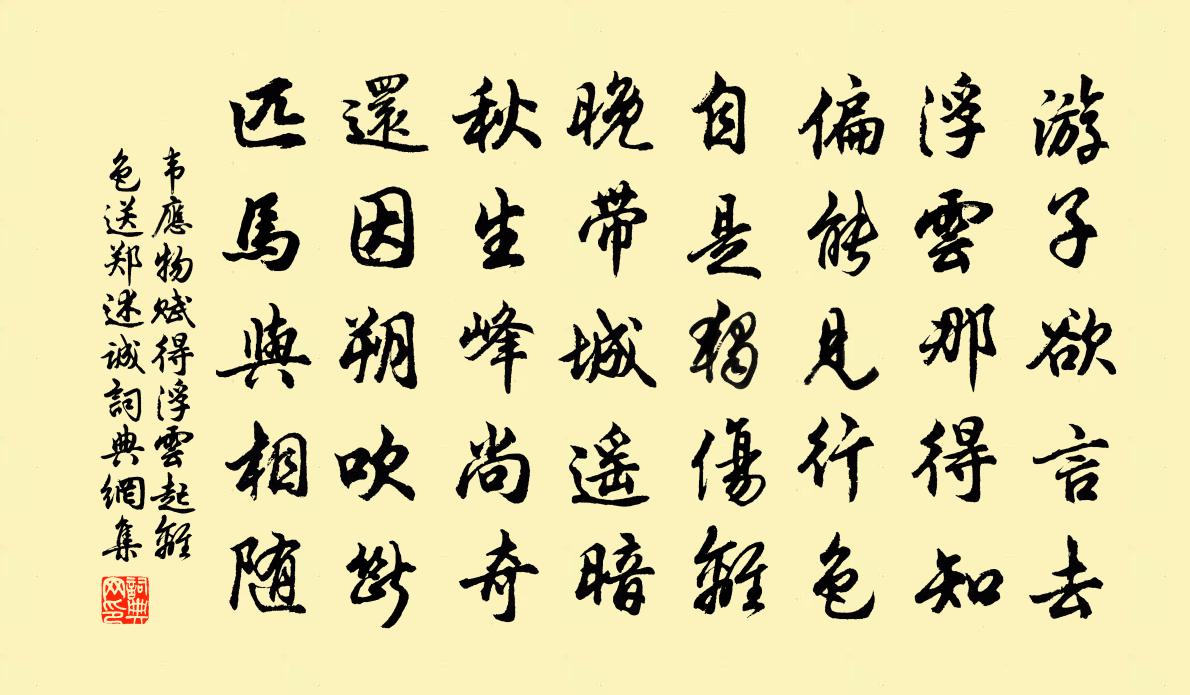 游子欲言去
浮雲那得知
偏能見行色
自是獨傷離
晚带城遥暗
秋生峰尚奇
還因朔吹斷
匹馬與相随
韦應物赋得浮雲起離
色送郑述诚詞典網集
詞典
网印